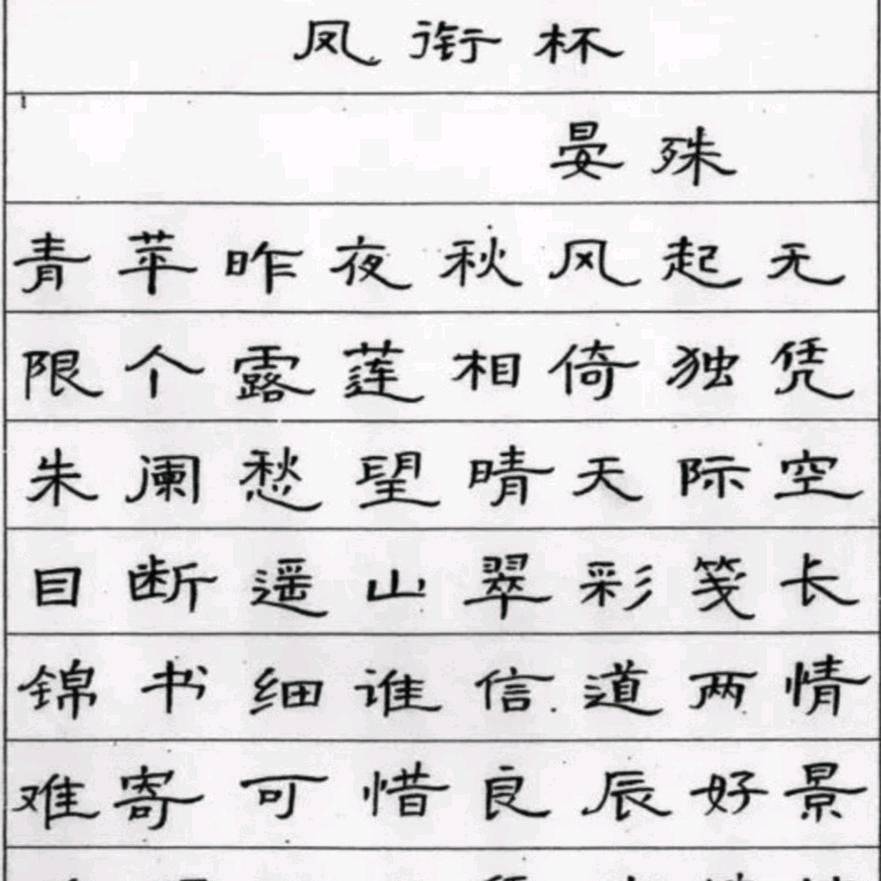 凤衔杯
晏殊
青苹昨夜秋风起无
限个露莲相倚独凭
朱阑愁望晴天际空
目断遥山翠彩笺长
锦书细谁信道两情
难寄可惜良辰好景